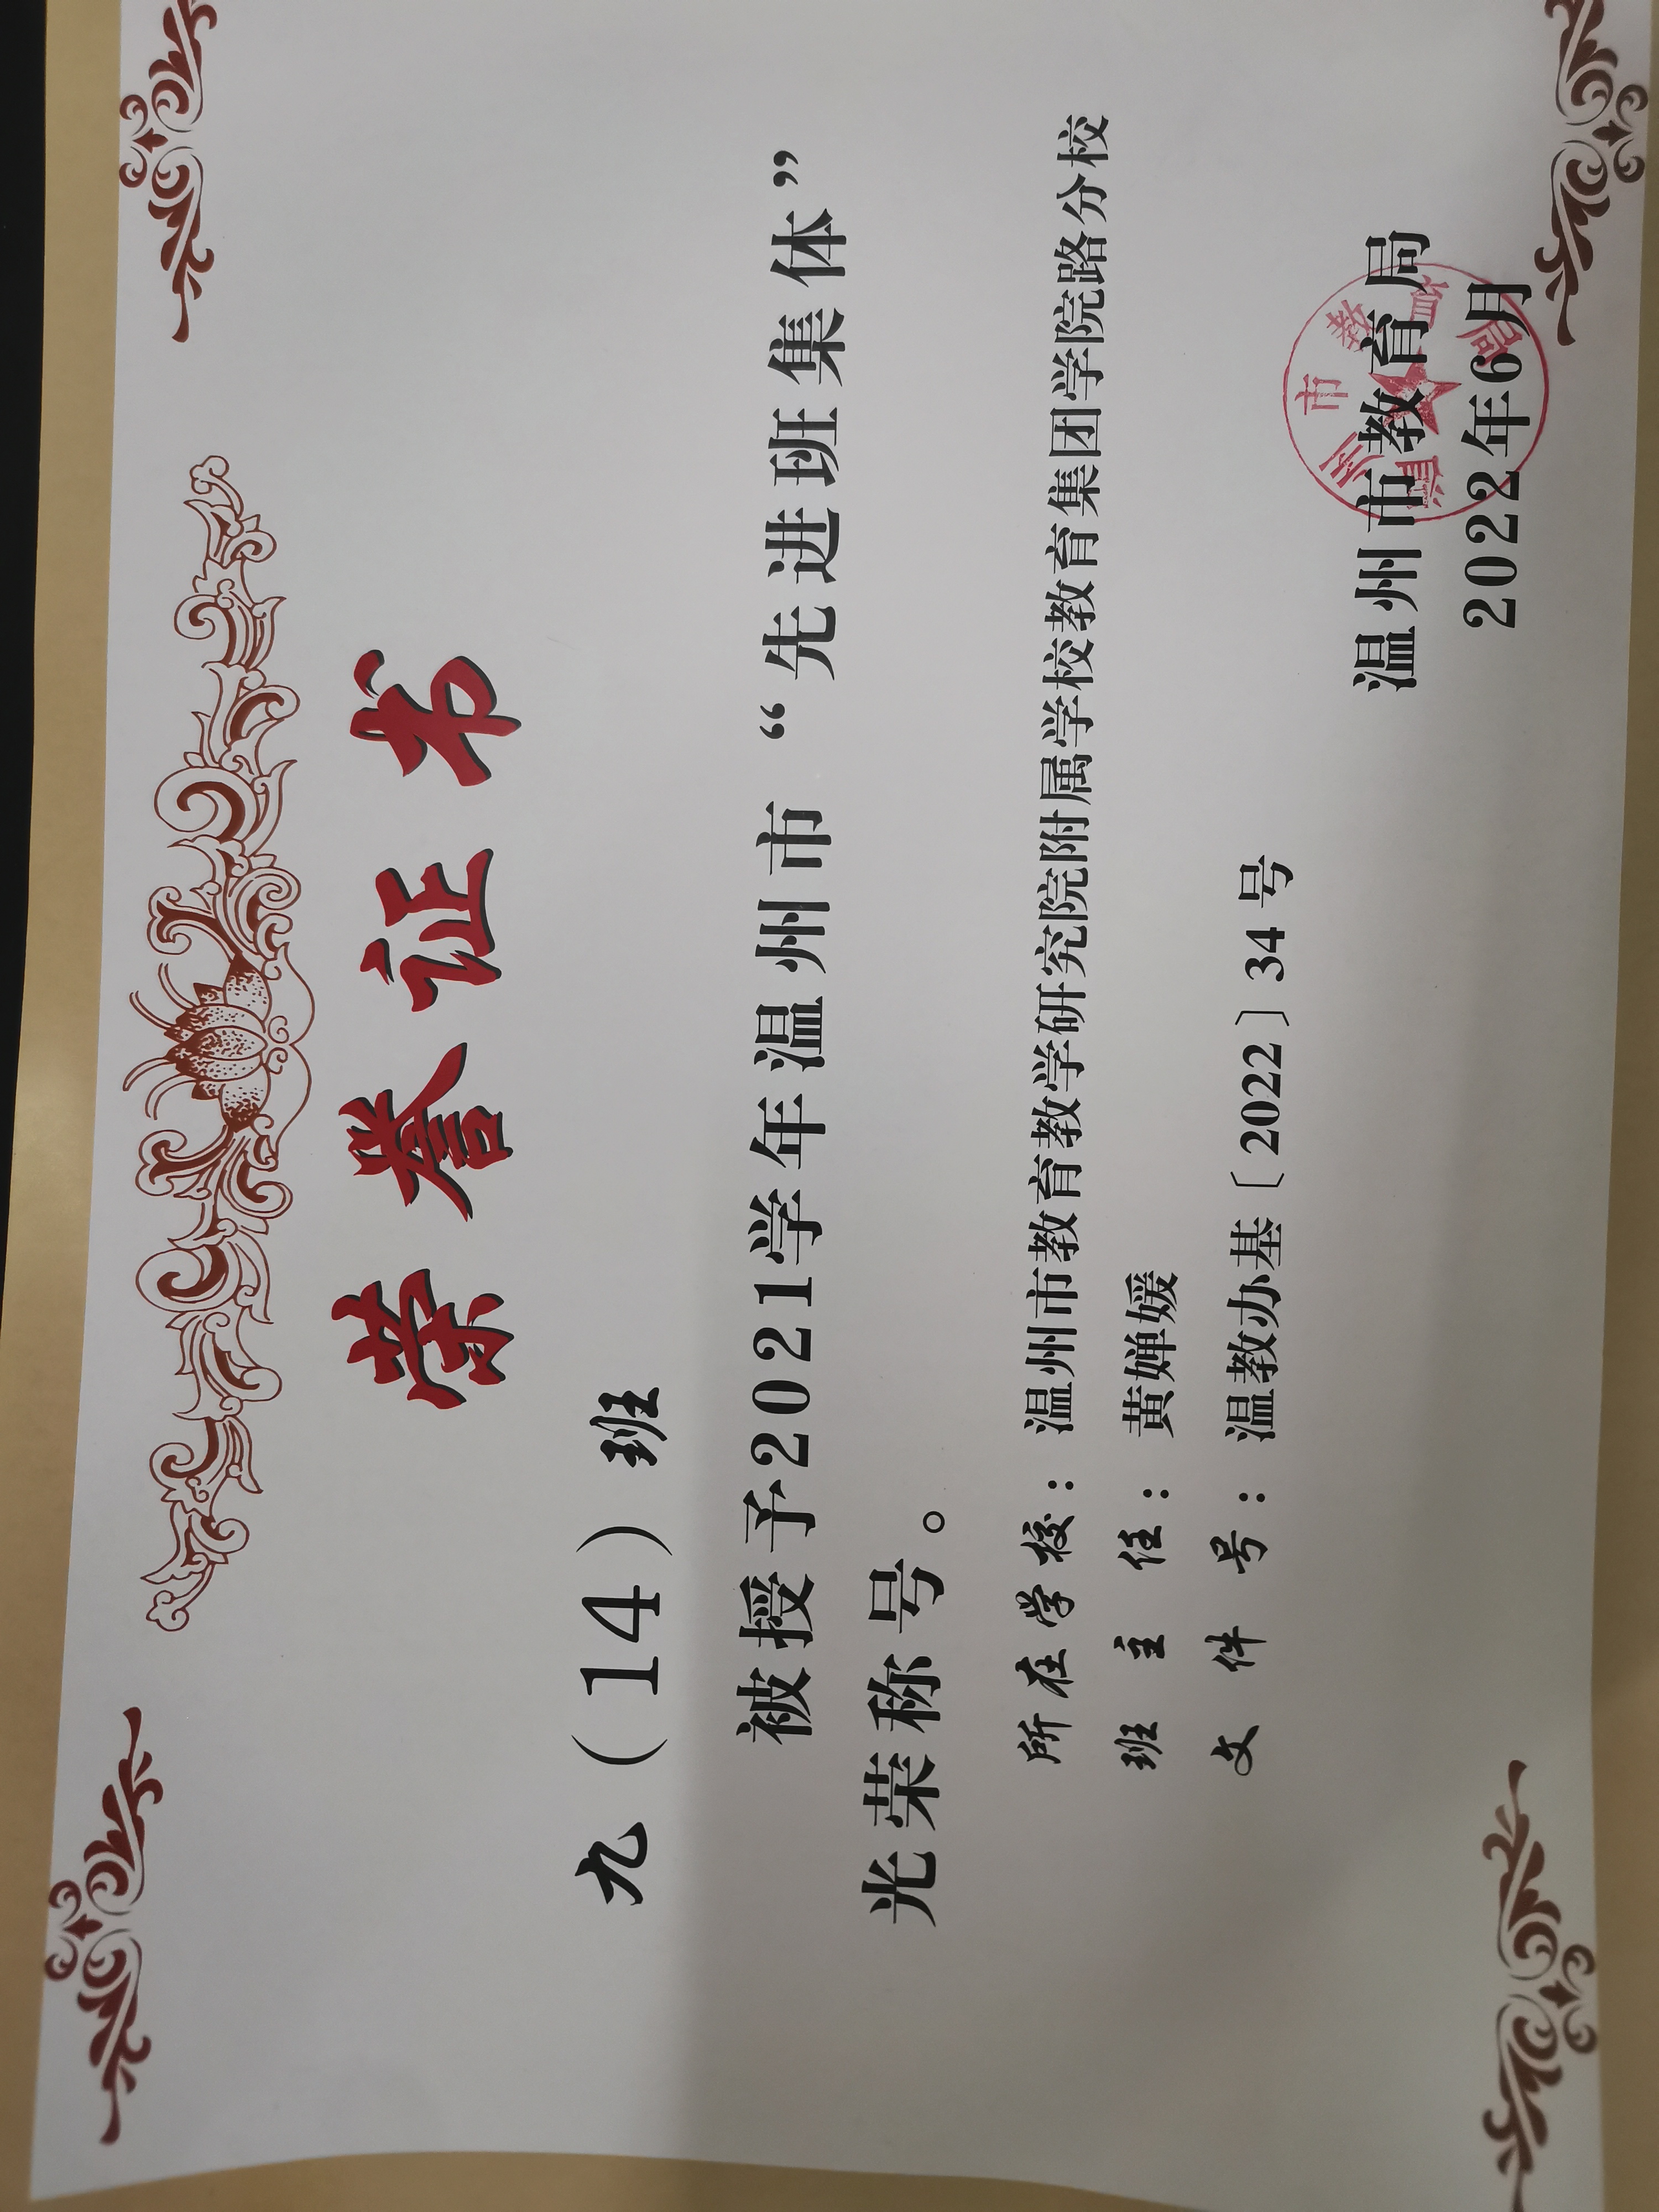 荣誉证书
九（14）班
被授予2021学年温州市“先进班集体”
光荣称号。
所在学校：温州市教育教学研究院附属学校教育集团学院路分校
班主任：黄婵媛
文件号：温教办基〔2022〕34号
温州市教育局
2022年6月
温州市教育局